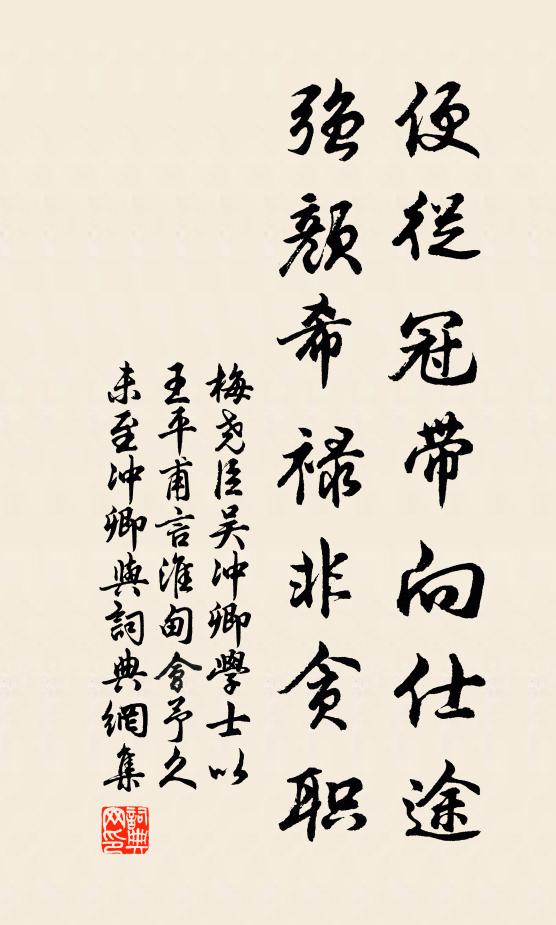 便從冠帶向仕途
强顏希禄非貪职
梅尧臣吴冲卿學士以
王平甫言淮甸會予久
未至冲卿與詞典網集
詞典网印